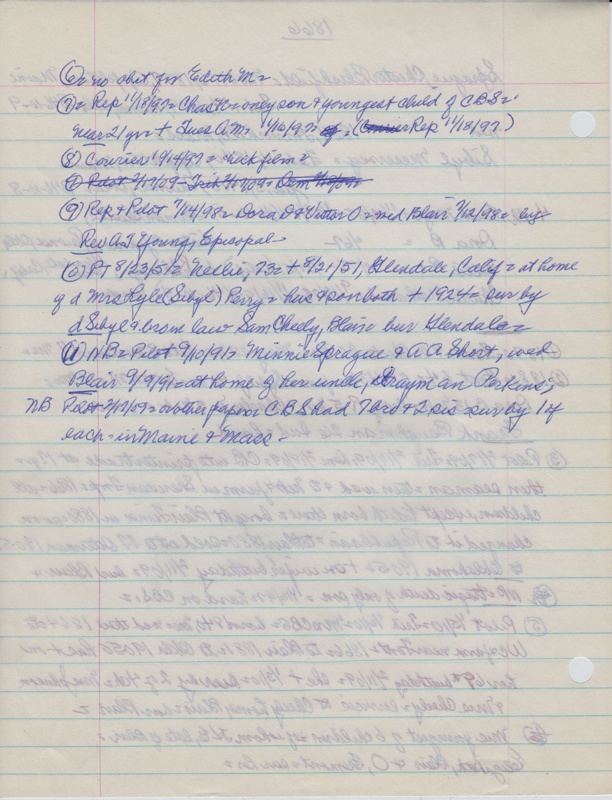 1866
(6) = no obit for Edith M =
(7) = Rep 11/18/97 = Chas K = only son & youngest child of CBS =
near 21 yrs + Tues A.M. 11/16/97 = (Courier Rep 11/18/97)
(8) Courier 9/14/97 = check film =
(9) Pilot 9/17/09 - Trib 9/17/09 = Dem
(9) Rep & Pilot 7/14/98 = Dora D & Victor O = wed Blair 7/12/98 = by
Rev A J Young, Episcopal -
(10) PT 8/23/51 = Neslie, 73 = + 8/21/51, Glendale, Calif = at home
of d Mrs Lyle (Sibyl) Perry = hus & son both + 1924 = sur by
d Sibyl & bro in law Sam Cheely, Blair bur Glendale =
(11) NB = Pilot 9/10/91 = Minnie Sprague & A A Short, wed
Blair 9/9/91 = at home of her uncle, Drayman Perkins;
NB Pilot 9/17/09 = another paper on CBS had 7 bro & 2 sis sur by 1 of
each = in Maine & Mass -